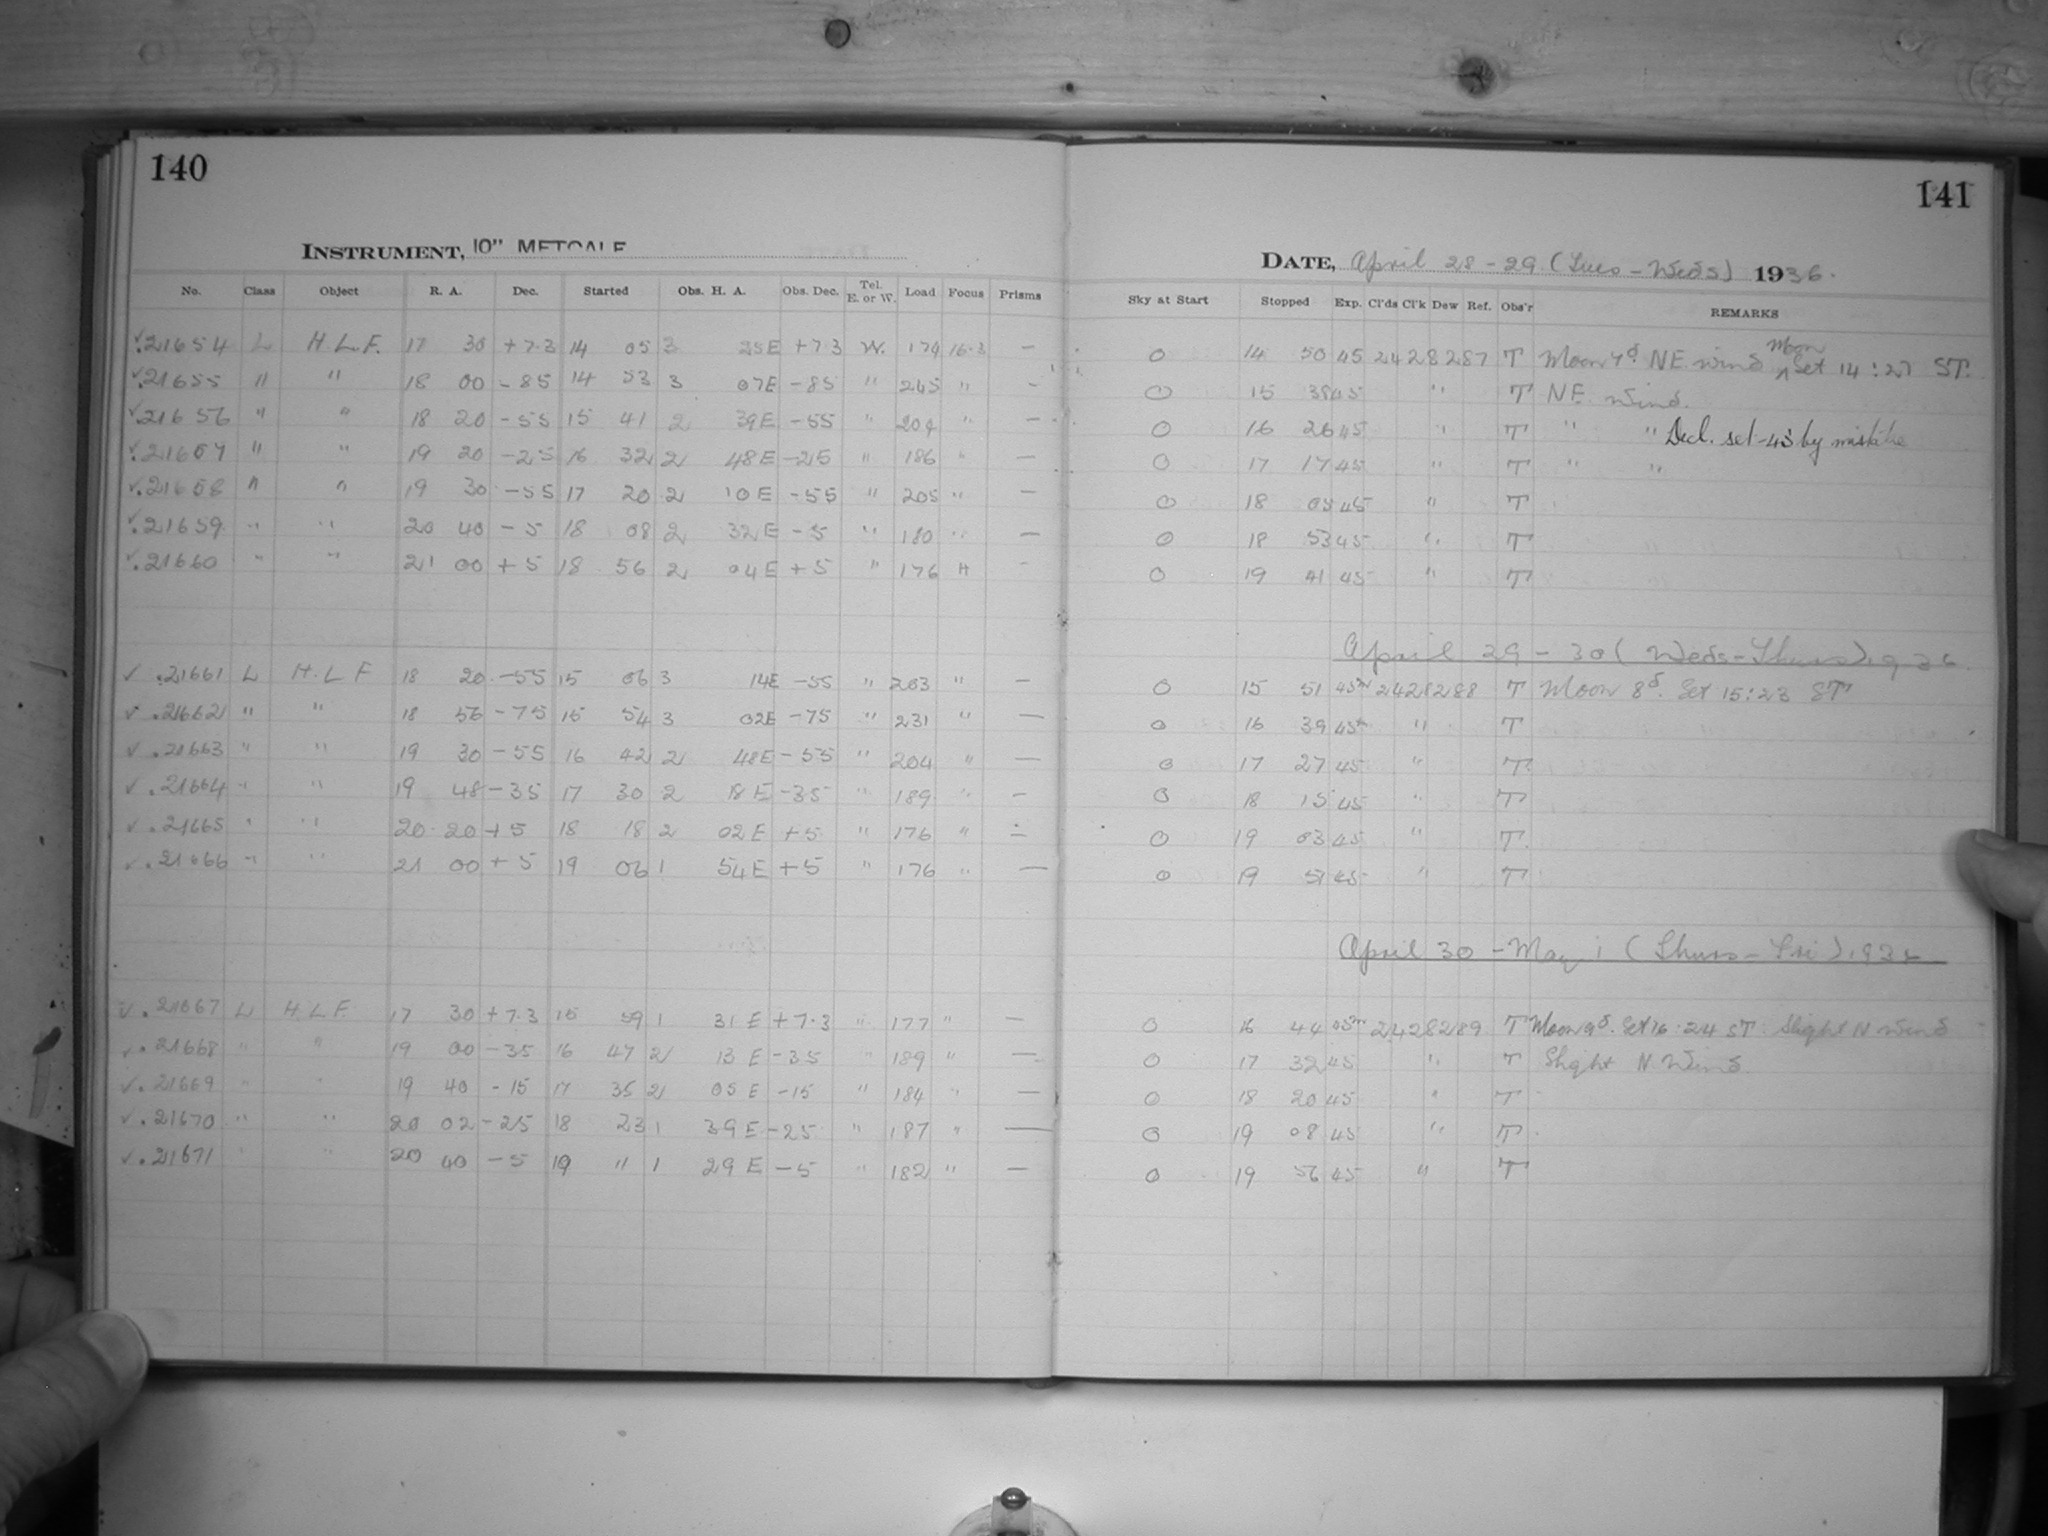 140
141
INSTRUMENT, 10" METCALF
DATE, April 28 - 29 (Tues - Weds) 1936.
No. Class Object R. A. Dec. Started Obs. H. A. Obs. Dec. Tel. E. or W. Load Focus Prisms Sky at Start Stopped Exp. Cl'ds Cl'k Dew Ref. Obs'r REMARKS
21654 L H.L.F. 17 30 +7.3 14 05 3 25E +7.3 W. 174 16.3 — 0 14 50 45 2428287 T Moon 7d. NE. wind Moon Set 14:27 ST.
21655 " " 18 00 -85 14 53 3 07E -85 " 245 " — 0 15 38 45 " T NE. wind.
21656 " " 18 20 -55 15 41 2 39E -55 " 204 " — 0 16 26 45 " T " " Decl. set -45 by mistake
21657 " " 19 20 -25 16 32 2 48E -25 " 186 " — 0 17 17 45 " T " "
21658 " " 19 30 -55 17 20 2 10E -55 " 205 " — 0 18 05 45 " T
21659 " " 20 40 -5 18 08 2 32E -5 " 180 " — 0 18 53 45 " T
21660 " " 21 00 +5 18 56 2 04E +5 " 176 " — 0 19 41 45 " T
April 29 - 30 (Weds - Thurs) 1936
21661 L H.L.F 18 20 -55 15 06 3 14E -55 " 203 " — 0 15 51 45m 2428288 T Moon 8d. Set 15:23 ST
21662 " " 18 56 -75 15 54 3 02E -75 " 231 " — 0 16 39 45m " T
21663 " " 19 30 -55 16 42 2 48E -55 " 204 " — 0 17 27 45 " T
21664 " " 19 48 -35 17 30 2 18E -35 " 189 " — 0 18 15 45 " T
21665 " " 20 20 +5 18 18 2 02E +5 " 176 " — 0 19 03 45 " T
21666 " " 21 00 +5 19 06 1 54E +5 " 176 " — 0 19 51 45 " T
April 30 - May 1 (Thurs - Fri) 1936
21667 L H.L.F. 17 30 +7.3 15 59 1 31E +7.3 " 177 " — 0 16 44 45m 2428289 T Moon 9d. Set 16:24 ST. Slight N wind
21668 " " 19 00 -35 16 47 2 13E -35 " 189 " — 0 17 32 45 " T Slight N. Wind
21669 " " 19 40 -15 17 35 2 05E -15 " 184 " — 0 18 20 45 " T
21670 " " 20 02 -25 18 23 1 39E -25 " 187 " — 0 19 08 45 " T
21671 " " 20 40 -5 19 11 1 29E -5 " 182 " — 0 19 56 45 " T